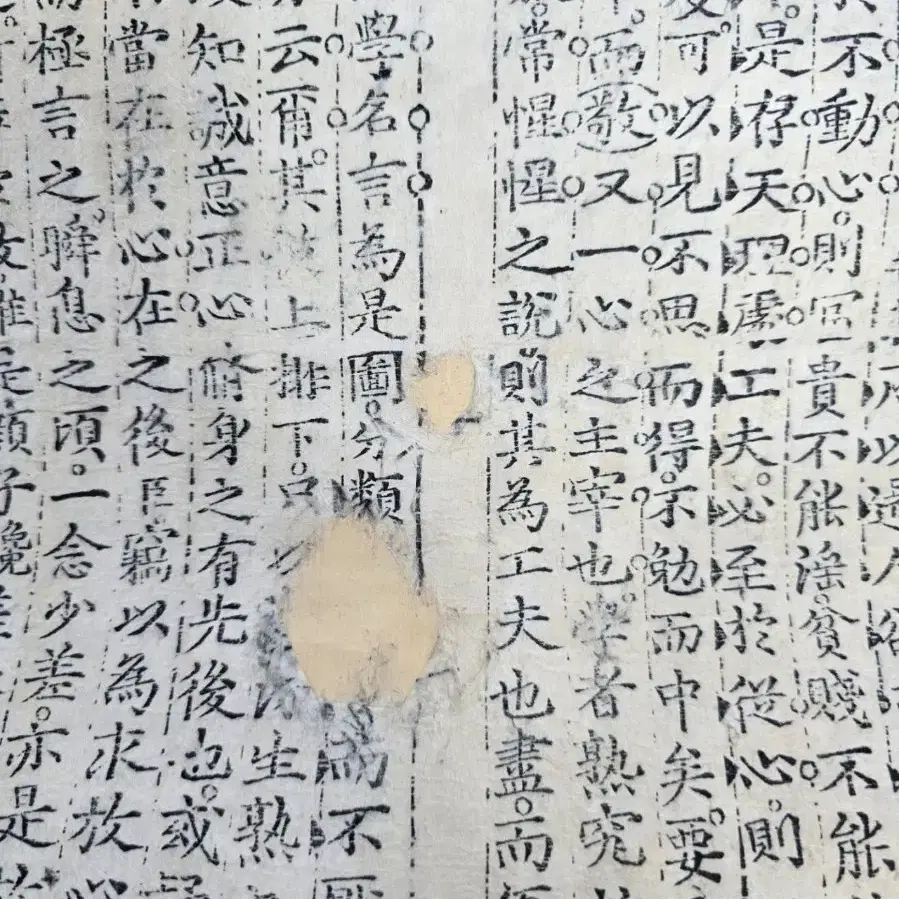 以遏人欲
不動心。則冨貴不能淫。貧賤不能
是存天理處工夫。必至於從心。則
可以見不思而得。不勉而中矣。要
而敬又一心之主宰也。學者熟究
常惺惺之說則其為工夫也盡。而
學名言為是圖。分類而不厭
云爾其上排下。只生熟
知誠意正心脩身之有先後也。或
當在於心在之後臣竊以為求放心
而極言之瞬息之頃。一念少差。亦是放
顏子纔差